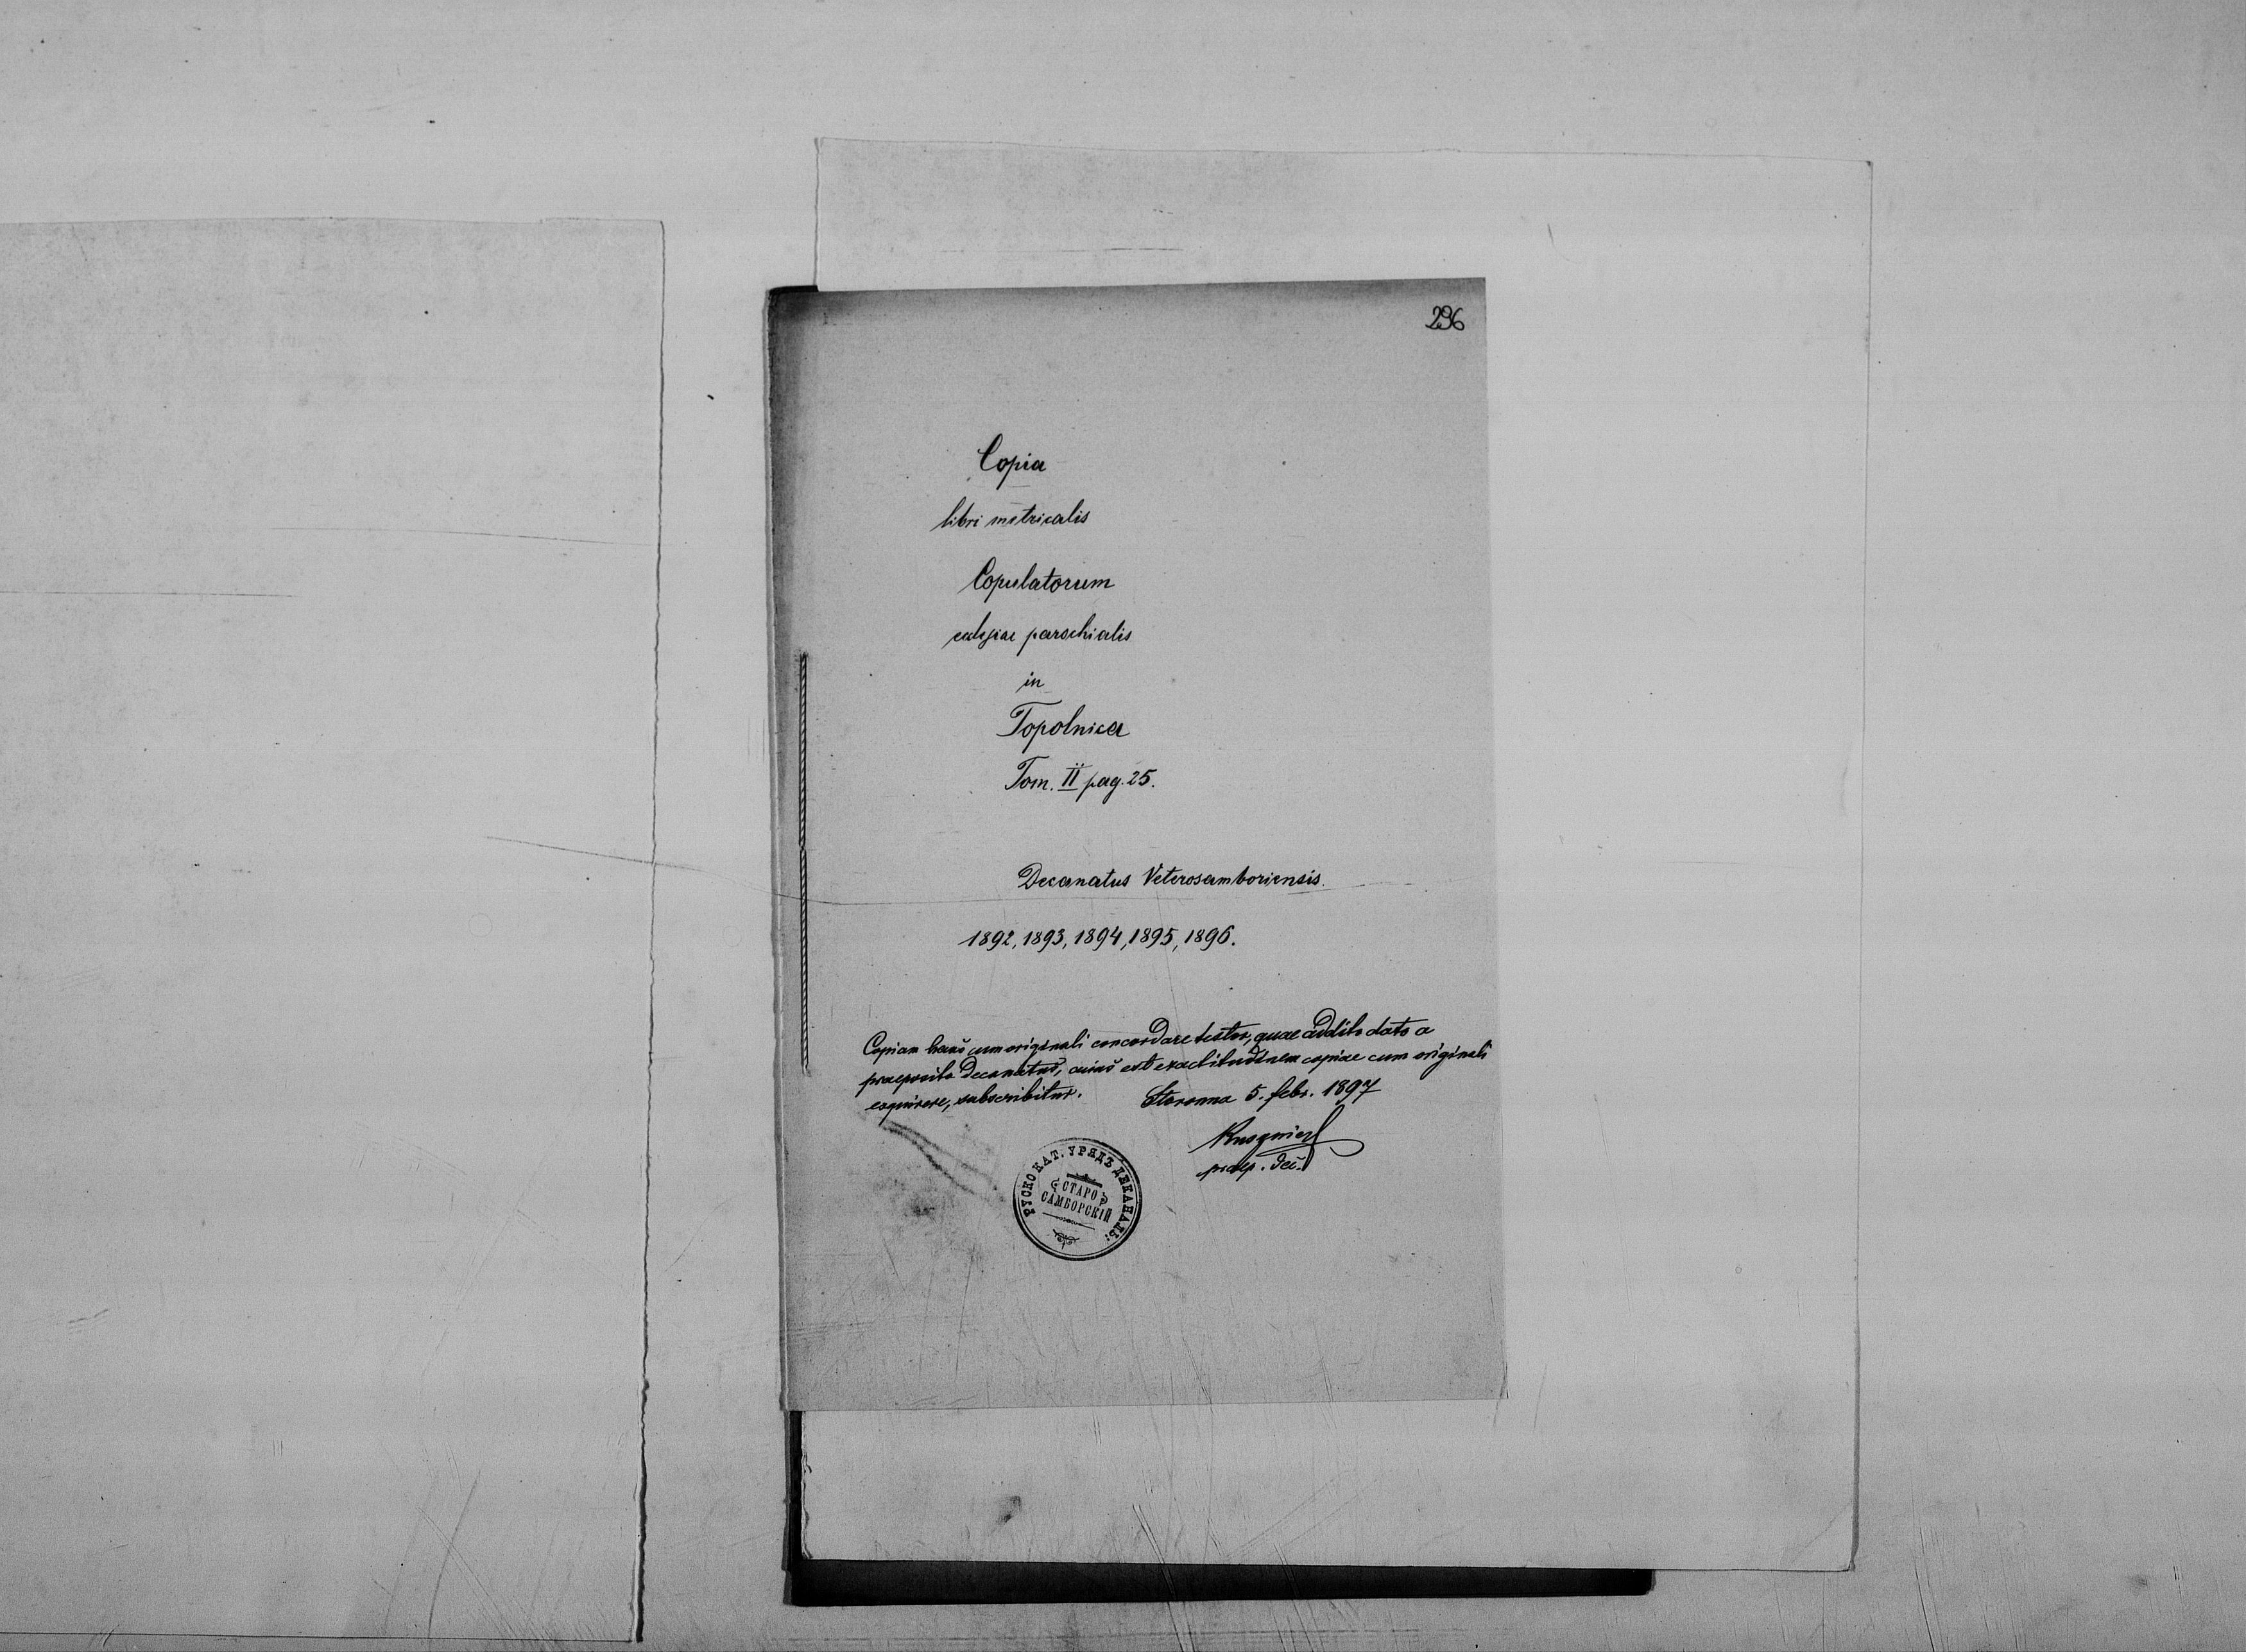 296
Copia
libri metricalis
Copulatorum
eclesiae parochialis
in
Topolnica
Tom. II pag. 25.
Decanatus Veterosamboriensis.
1892, 1893, 1894, 1895, 1896.
Copiam hanc cum originali concordare testor, quae addito dato a
praeposito Decanatus, cuius est exactitudinem copiae cum originali
exquirere, subscribitur. Storonna 5. febr. 1897
praep. Dec.
РУСКО КАТ. УРЯДЪ ДЕКАНАЛЬ:
СТАРО
САМБОРСКІЙ